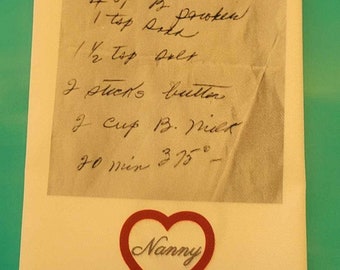 B. Powder
1 tsp Soda
1 1/2 tsp Salt
2 sticks butter
2 cup B. Milk
20 min 375° -
Nanny